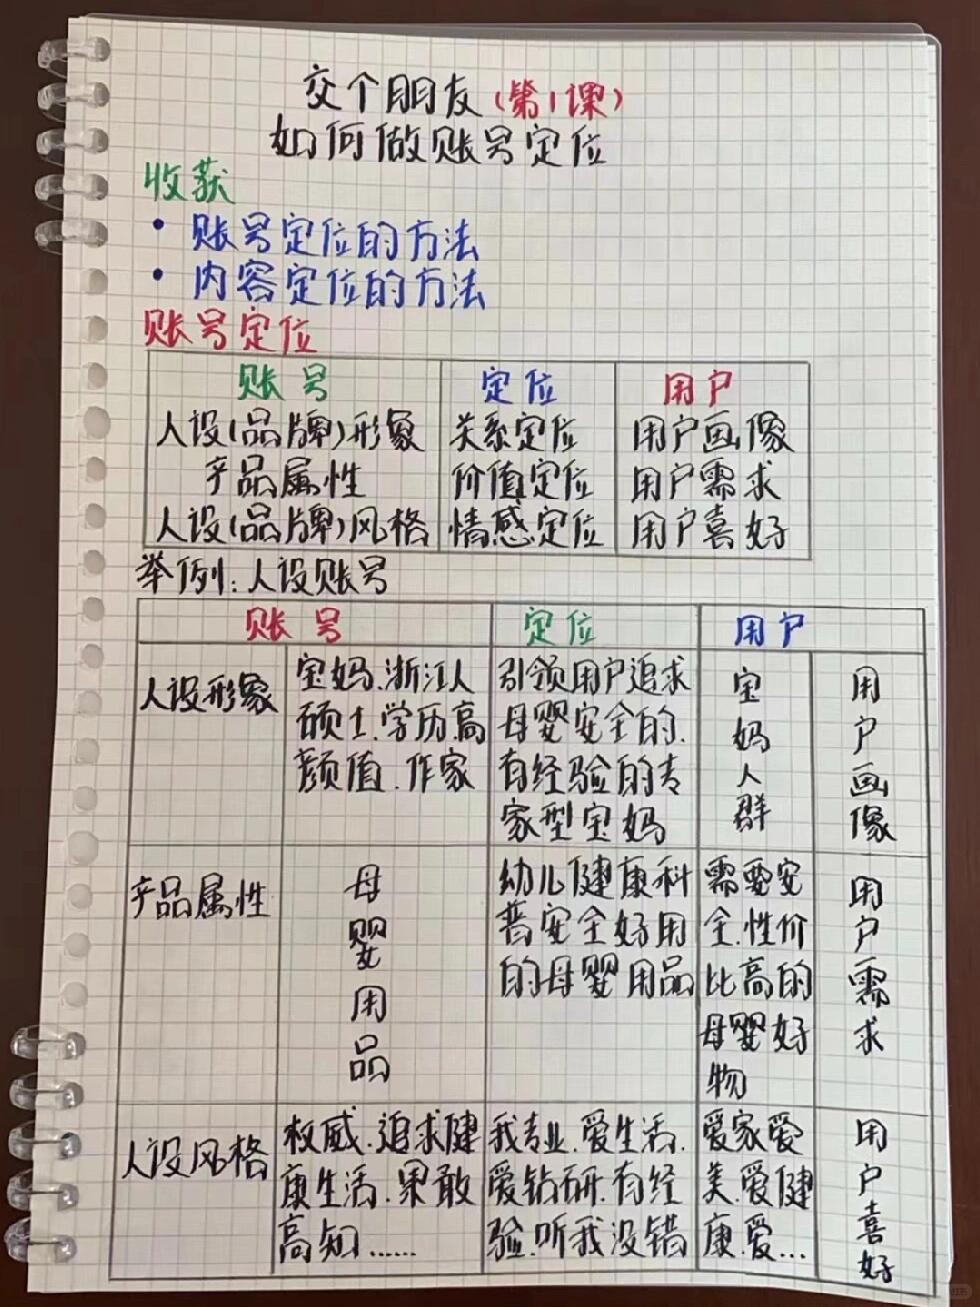 交个朋友(第1课)
如何做账号定位
收获
• 账号定位的方法
• 内容定位的方法
账号定位
账号 定位 用户
人设(品牌)形象 关系定位 用户画像
产品属性 价值定位 用户需求
人设(品牌)风格 情感定位 用户喜好
举例:人设账号
账号 定位 用户
人设形象
宝妈.浙江人
硕士.学历高
颜值.作家
引领用户追求
母婴安全的.
有经验的专
家型宝妈
宝妈人群
用户画像
产品属性
母婴用品
幼儿健康科
普安全好用
的母婴用品
需要安
全.性价
比高的
母婴好
物
用户需求
人设风格
权威.追求健
康生活.果敢
高知……
我专业.爱生活.
爱钻研.有经
验.听我没错
爱家爱
美.爱健
康.爱...
用户喜好